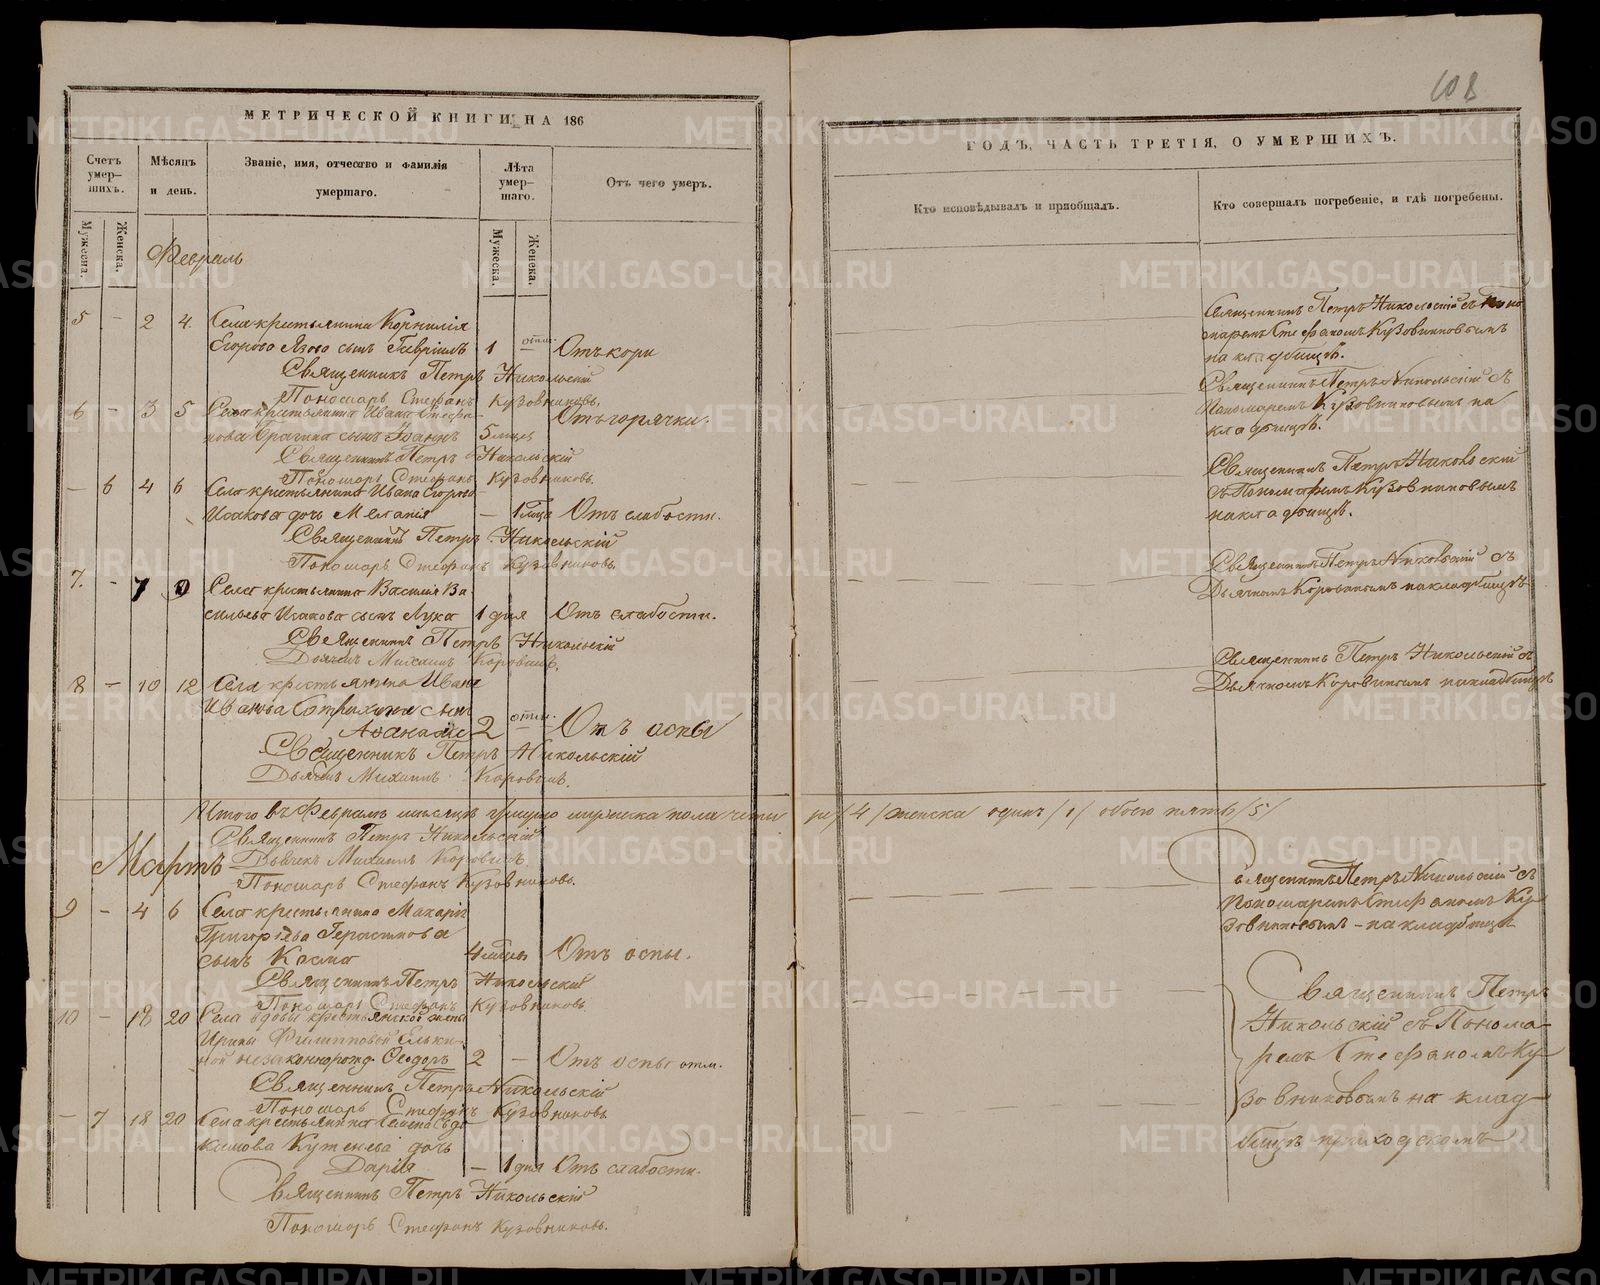 108
МЕТРИЧЕСКОЙ КНИГИ НА 186
ГОДЪ, ЧАСТЬ ТРЕТІЯ, О УМЕРШИХЪ.
Счетъ умер-шихъ.
Мѣсяцъ и день.
Званіе, имя, отчество и фамилія умершаго.
Лѣта умер-шаго.
Отъ чего умеръ.
Кто исповѣдывалъ и пріобщалъ.
Кто совершалъ погребеніе, и гдѣ погребены.
Мужеска.
Женска.
Мужеска.
Женска.
Февраль
5 - 2 4. Села крестьянина Корнилія
Егорова Язова сынъ Гавріилъ 1 - Отъ кори
Священникъ Петръ Никольскій
Пономарь Стефанъ Кузовниковъ.
Священникъ Петръ Никольскій съ Поно
маремъ Стефаномъ Кузовниковымъ
на кладбищѣ.
6 - 3 5 Села крестьянина Ивана Стефа-
нова Брагина сынъ Іоаннъ 5 мѣсяц Отъ горячки.
Священникъ Петръ Никольскій
Пономарь Стефанъ Кузовниковъ.
Священникъ Петръ Никольскій съ
Пономаремъ Кузовниковымъ на
кладбищѣ.
- 6 4 6 Села крестьянина Ивана Егорова
Исакова дочь Меланія - Отъ слабости.
Священникъ Петръ Никольскій
Пономарь Стефанъ Кузовниковъ.
Священникъ Петръ Никольскій
съ Пономаремъ Кузовниковымъ
на кладбищѣ.
7. - 7 Села крестьянина Василія Ва
сильева Исакова сынъ Лука 1 дня Отъ слабости.
Священникъ Петръ Никольскій
Дьячекъ Михаилъ Коровинъ.
Священникъ Петръ Никольскій съ
Дьячкомъ Коровинымъ на кладбищѣ
8 - 10 12 Села крестьянина Ивана
Иванова сынъ
Аѳанасій 2 - Отъ оспы
Священникъ Петръ Никольскій
Дьячекъ Михаилъ Коровинъ.
Священникъ Петръ Никольскій съ
Дьячкомъ Коровинымъ на кладбищѣ
Итого въ Февралѣ мѣсяцѣ умерло мужеска пола четы ре /4/ женска одинъ /1/ обоего пять /5/
Священникъ Петръ Никольскій
Дьячекъ Михаилъ Коровинъ.
Пономарь Стефанъ Кузовниковъ.
Мартъ
9 - 4 6 Села крестьянина Макарія
Григорьева Герасимова
сынъ Косма 4 мѣсяц Отъ оспы.
Священникъ Петръ Никольскій
Пономарь Стефанъ Кузовниковъ
Священникъ Петръ Никольскій съ
Пономаремъ Стефаномъ Ку
зовниковымъ - на кладбищѣ
10 - 18 20 Села вдовы крестьянской жены
Ирины Филипповой Ельки-
ной незаконнорожд. Ѳеодоръ 2 - Отъ оспы отм.
Священникъ Петръ Никольскій
Пономарь Стефанъ Кузовниковъ
Священникъ Петръ
Никольскій съ Понома
ремъ Стефаномъ Ку
зовниковымъ на клад
бищѣ приходскомъ
- 7 18 20 Села крестьянина
дочь
Дарія - 1 дня Отъ слабости.
Священникъ Петръ Никольскій
Пономарь Стефанъ Кузовниковъ.
METRIKI.GASO-URAL.RU